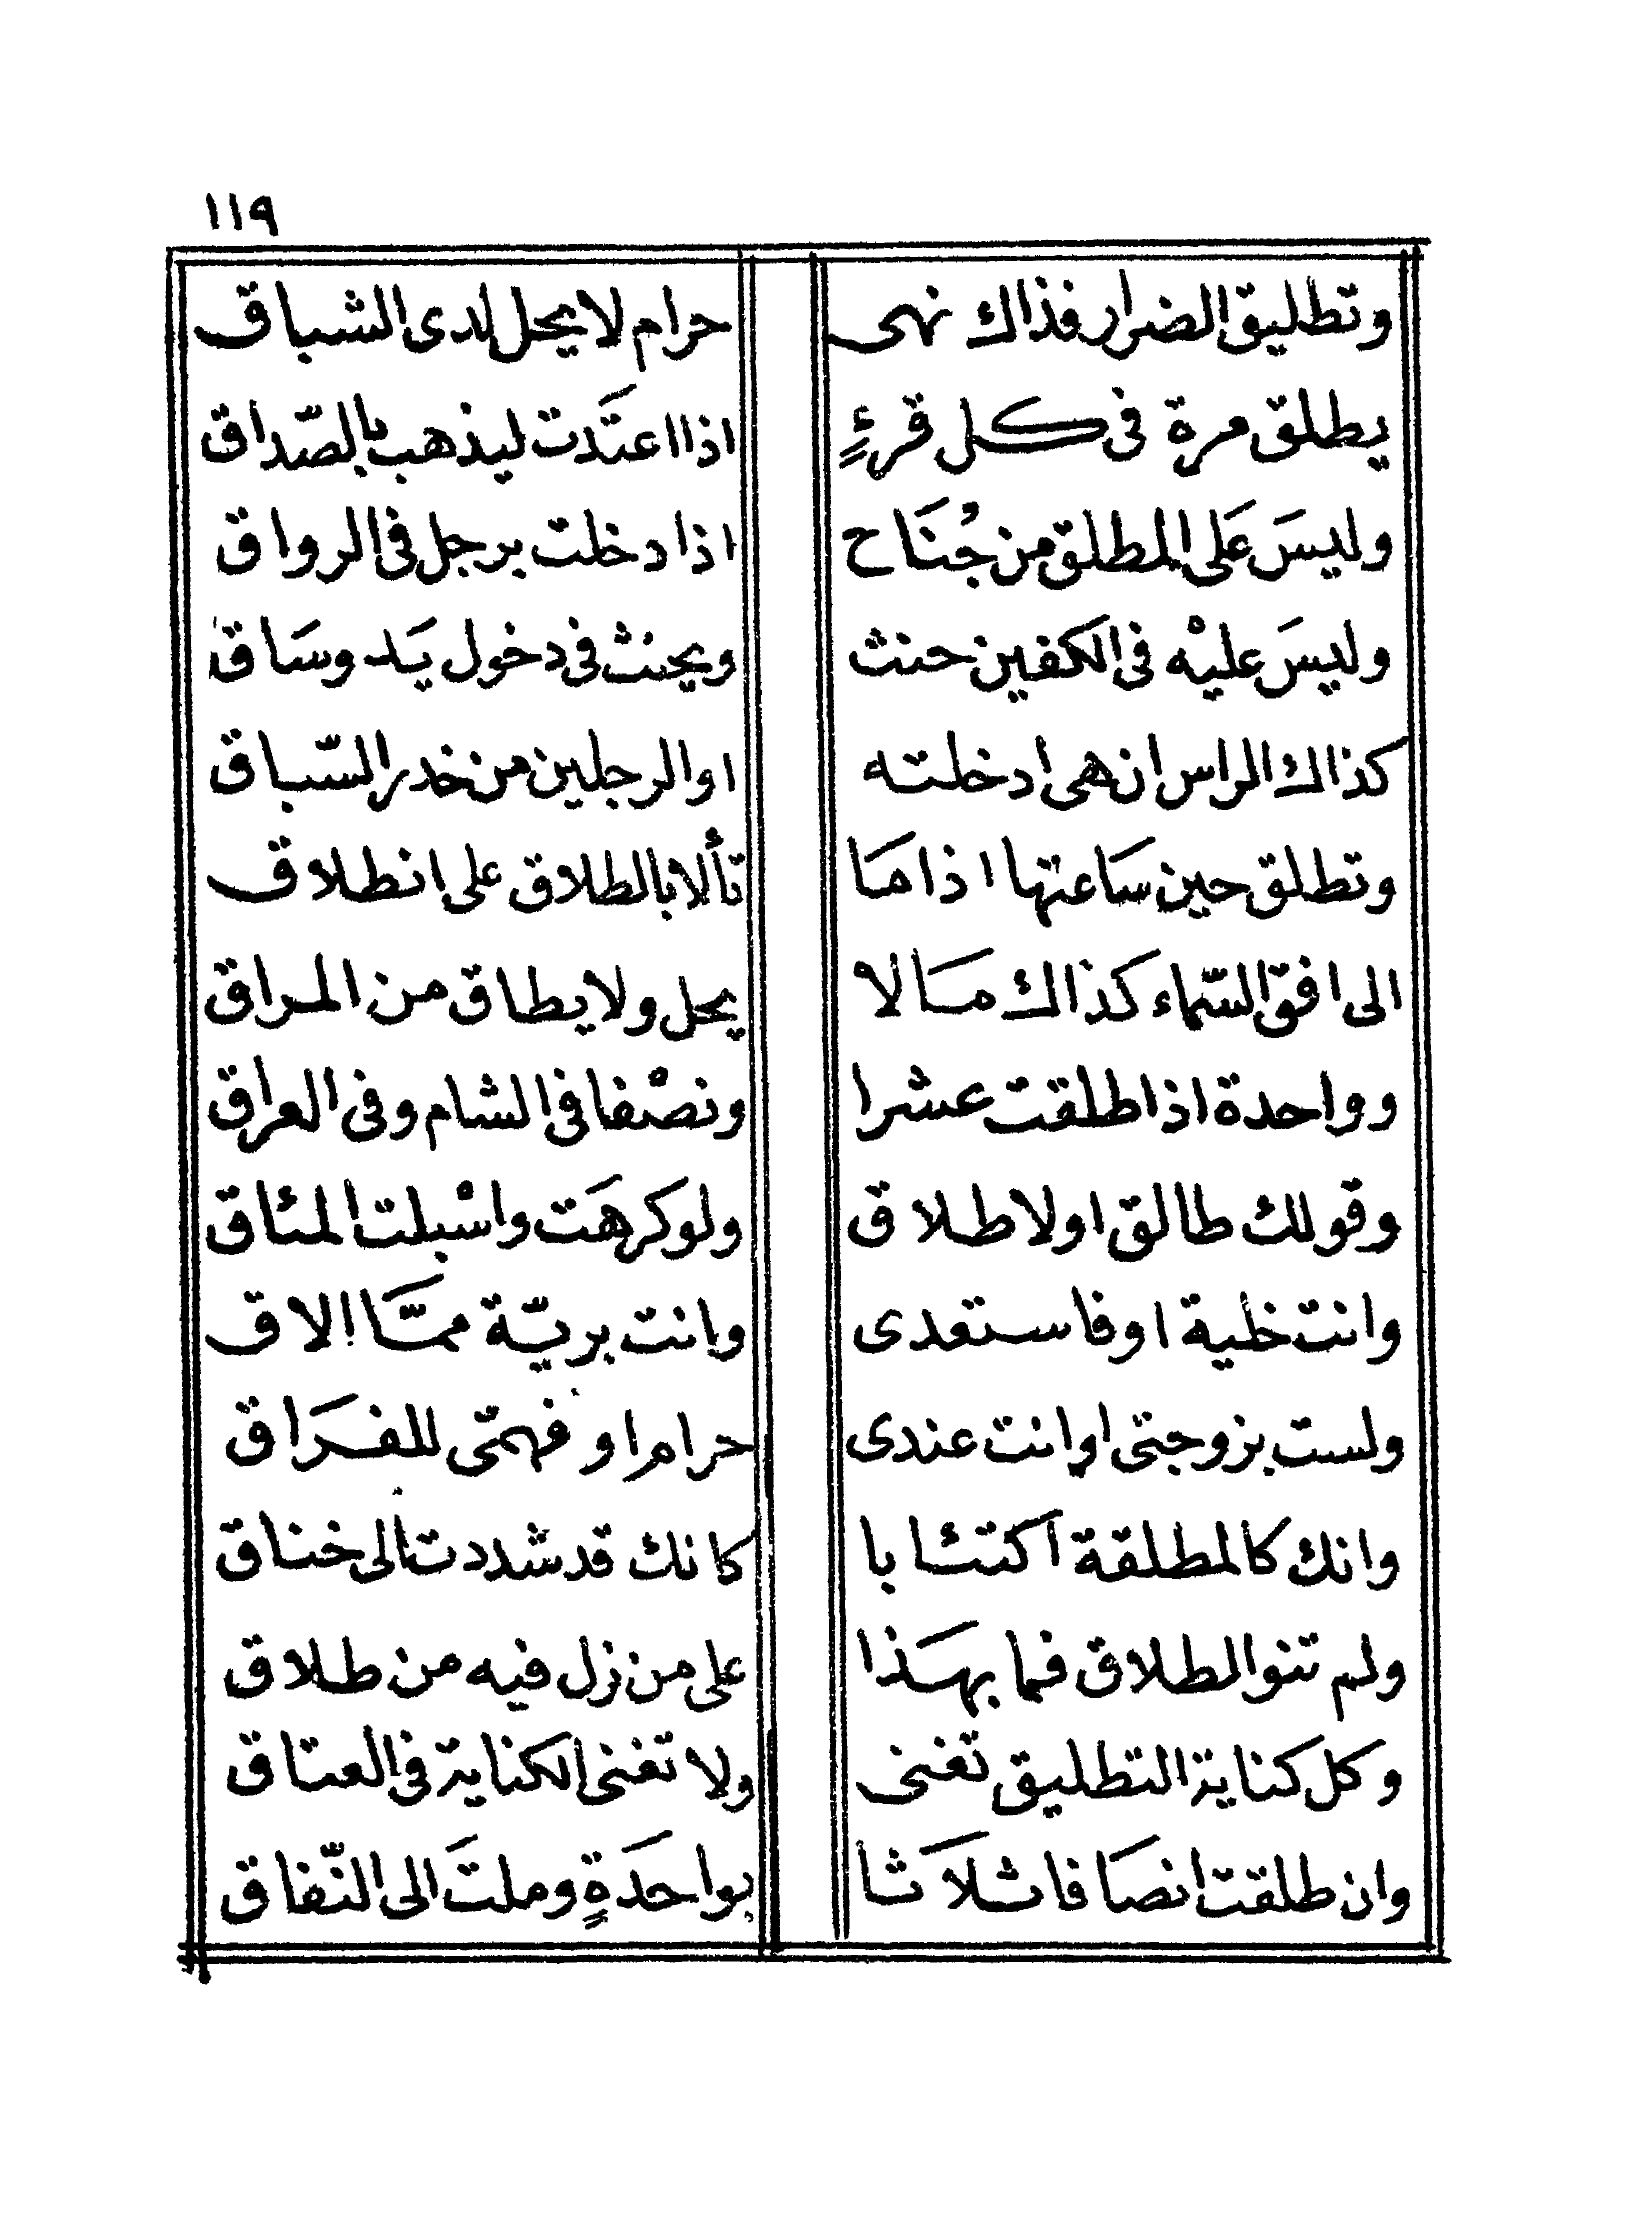 ١١٩
وتطليق الضرار فذاك نهى حرام لا يحل لدى الشباق
يطلق مرة فى كل قرءٍ اذا اعتَدت ليذهب بالصّداق
وليسَ عَلى المطلق من جُنَاح اذا دخلت برجل فى الرواق
وليسَ عليْه فى الكفين حنث ويحنث فى دخول يَد وسَاق
كذاك الراس ان هى ادخلته او الرجلين من خدر السّباق
وتطلق حين سَاعتها اذا مَا تألا بالطلاق على انطلاق
الى افق السّماء كذاك مَا لا يحل ولا يطاق من المراق
وواحدة اذا طلقت عشرا ونصْفا فى الشام وفى العراق
وقولك طالق اولا طلاق ولو كرهَت واسْبلت المئاق
وانت خلية او فاستعدى وانت بريّة ممَّا الاق
ولست بزوجتى او انت عندى حرام او فهمّى للفرَاق
وانك كالمطلقة اكتئابا كانك قد شددت الى خناق
ولم تنو الطلاق فما بهَذا على من نزل فيه من طلاق
وكل كناية التطليق تغنى ولا تغنى الكناية فى العتاق
وان طلقت انصَا فا ثلاَثا بواحَدةٍ وملتَ الى النّفاق